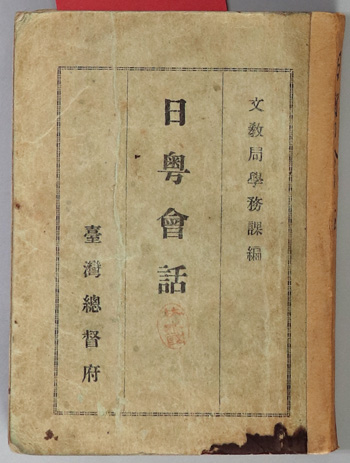 文敎局學務課編
日粤會話
臺灣總督府